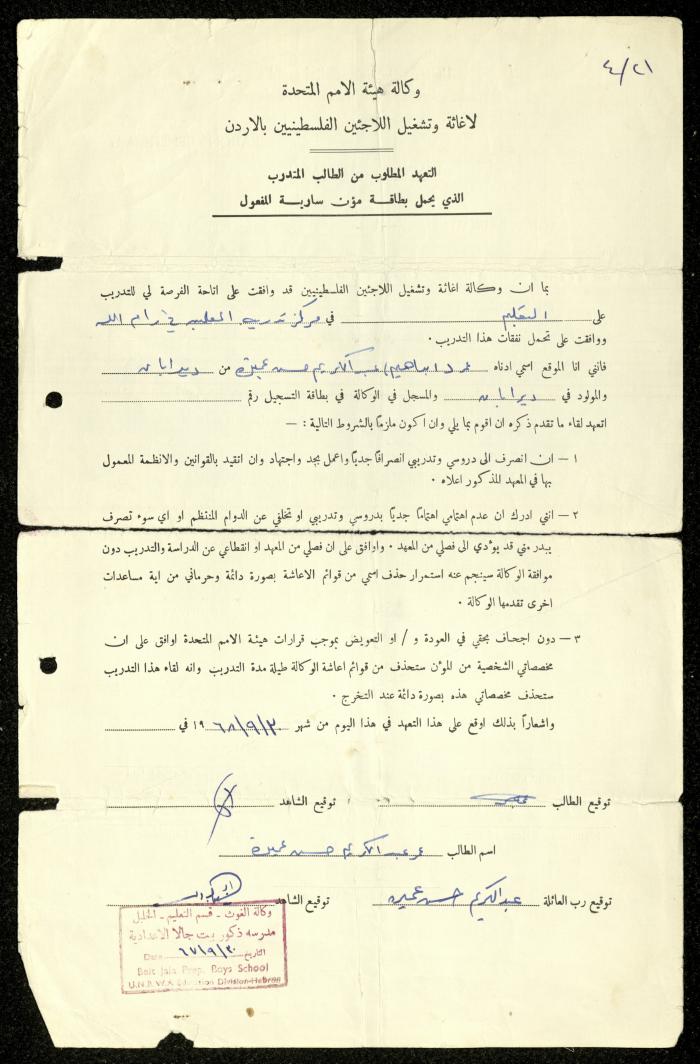 ٤/٢١
وكالة هيئة الامم المتحدة
لاغاثة وتشغيل اللاجئين الفلسطينيين بالاردن
التعهد المطلوب من الطالب المتدرب
الذي يحمل بطاقة مؤن سارية المفعول
بما ان وكالة اغاثة وتشغيل اللاجئين الفلسطينيين قد وافقت على اتاحة الفرصة لي للتدريب
على التعليم في مركز تدريب المعلمين في رام الله
ووافقت على تحمل نفقات هذا التدريب ٠
فانني انا الموقع اسمي ادناه عبد الكريم حسن عميرة من ديرابان
والمولود في ديرابان والمسجل في الوكالة في بطاقة التسجيل رقم
اتعهد لقاء ما تقدم ذكره ان اقوم بما يلي وان اكون ملزماً بالشروط التالية : —
١ — ان انصرف الى دروسي وتدريبي انصرافاً جدياً واعمل بجد واجتهاد وان اتقيد بالقوانين والانظمة المعمول
بها في المعهد المذكور اعلاه ٠
٢ — انني ادرك ان عدم اهتمامي اهتماماً جدياً بدروسي وتدريبي او تخلفي عن الدوام المنتظم او اي سوء تصرف
يبدر مني قد يؤدي الى فصلي من المعهد ٠ واوافق على ان فصلي من المعهد او انقطاعي عن الدراسة والتدريب دون
موافقة الوكالة سينجم عنه استمرار حذف اسمي من قوائم الاعاشة بصورة دائمة وحرماني من اية مساعدات
اخرى تقدمها الوكالة ٠
٣ — دون اجحاف بحقي في العودة و / او التعويض بموجب قرارات هيئة الامم المتحدة اوافق على ان
مخصصاتي الشخصية من المؤن ستحذف من قوائم اعاشة الوكالة طيلة مدة التدريب وانه لقاء هذا التدريب
ستحذف مخصصاتي هذه بصورة دائمة عند التخرج ٠
واشعاراً بذلك اوقع على هذا التعهد في هذا اليوم من شهر ٦٨/٩/٣٠ ١٩ في
توقيع الطالب توقيع الشاهد
اسم الطالب عمر عبد الكريم حسن عميرة
توقيع رب العائلة عبد الكريم حسن عميره توقيع الشاهد
وكالة الغوث - قسم التعليم - الخليل
مدرسة ذكور بيت جالا الاعدادية
التاريخ ٦٧/٩/٣٠ Date
Beit Jala Prep. Boys School
U.N.R.W.A Education Division-Hebron